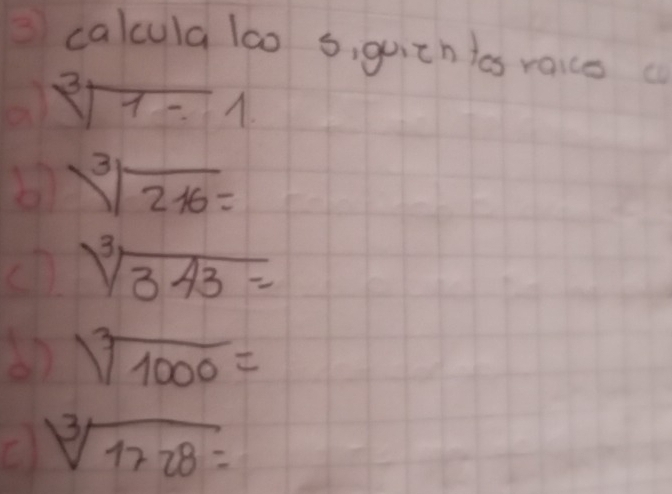 3) calcula las siguientes raices
a) ∛1 = 1.
b) ∛216 =
c) ∛343 =
d) ∛1000 =
e) ∛1728 =